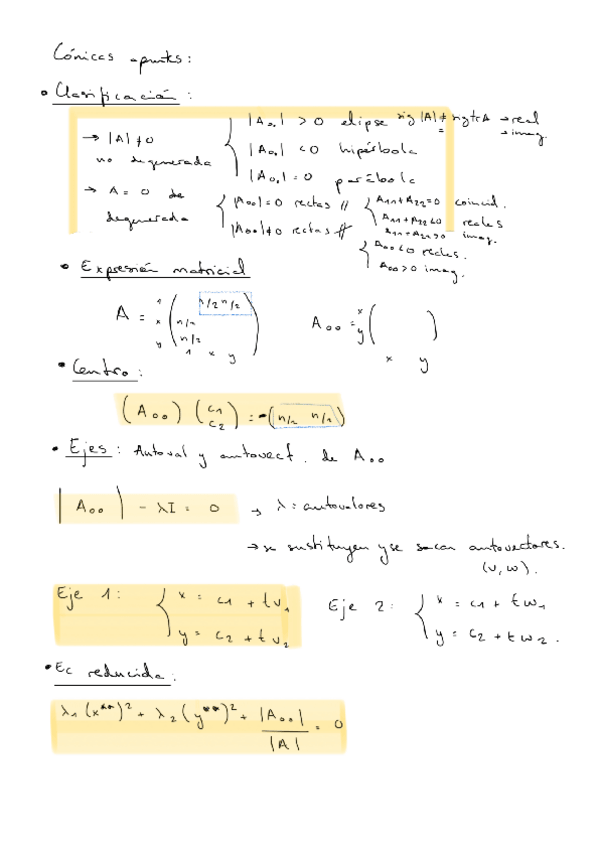 Cónicas apuntes:
• Clasificación:
→ |A| ≠ 0 no degenerada
|A₀₀| > 0 elipse sig|A| ≠ sig trA → real
= → imag.
|A₀₀| < 0 hipérbola
|A₀₀| = 0 parábola
→ A = 0 de degenerada
|A₀₀| = 0 rectas //
A₁₁ + A₂₂ = 0 coincid.
A₁₁ + A₂₂ < 0 reales
A₁₁ + A₂₂ > 0 imag.
|A₀₀| ≠ 0 rectas ∦
A₀₀ < 0 reales.
A₀₀ > 0 imag.
• Expresión matricial
A = 1 x y ( n/2 n/2 n/2 n/2 ) 1 x y
A₀₀ = x y ( ) x y
• Centro:
(A₀₀) (c₁ c₂) = -(n/2 n/2)
• Ejes: Autoval y autovect. de A₀₀
|A₀₀| - λI = 0 → λ: autovalores
→ se sustituyen y se sacan autovectores.
(v, w).
Eje 1: { x = c₁ + t v₁ Eje 2: { x = c₁ + t w₁
y = c₂ + t v₂ y = c₂ + t w₂.
• Ec reducida:
λ₁(x**)² + λ₂(y**)² + |A₀₀| / |A| = 0